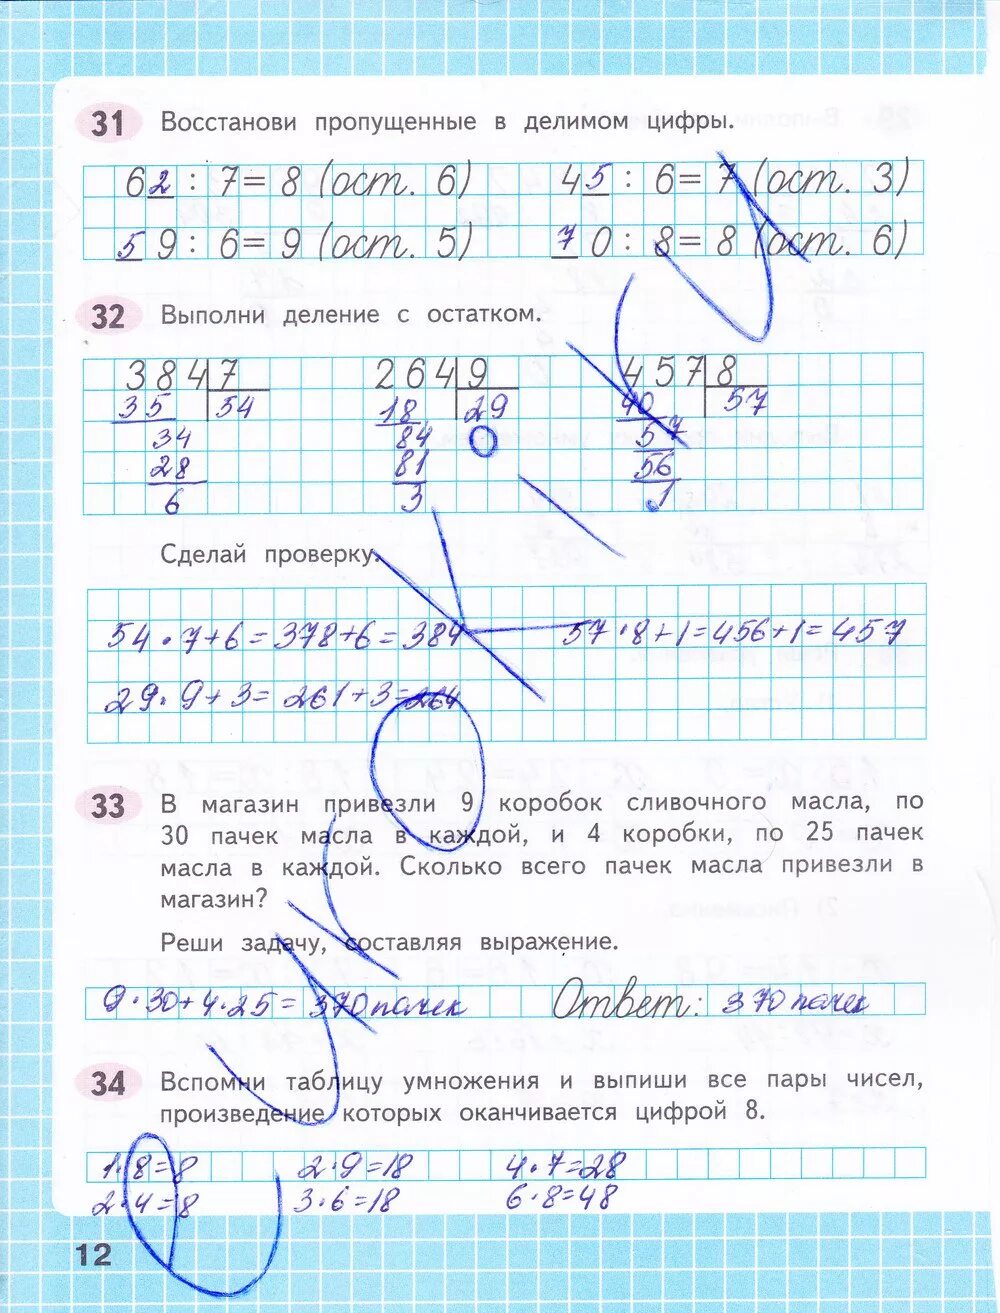 31 Восстанови пропущенные в делимом цифры.
62 : 7 = 8 (ост. 6) 45 : 6 = 7 (ост. 3)
59 : 6 = 9 (ост. 5) 70 : 8 = 8 (ост. 6)
32 Выполни деление с остатком.
384 7 264 9 457 8
35 54 18 29 40 57
34 84 57
28 81 56
6 3 1
Сделай проверку.
54 · 7 + 6 = 378 + 6 = 384 57 · 8 + 1 = 456 + 1 = 457
29 · 9 + 3 = 261 + 3 = 264
33 В магазин привезли 9 коробок сливочного масла, по
30 пачек масла в каждой, и 4 коробки, по 25 пачек
масла в каждой. Сколько всего пачек масла привезли в
магазин?
Реши задачу, составляя выражение.
9 · 30 + 4 · 25 = 370 пачек Ответ: 370 пачек
34 Вспомни таблицу умножения и выпиши все пары чисел,
произведение которых оканчивается цифрой 8.
1 · 8 = 8 2 · 9 = 18 4 · 7 = 28
2 · 4 = 8 3 · 6 = 18 6 · 8 = 48
12